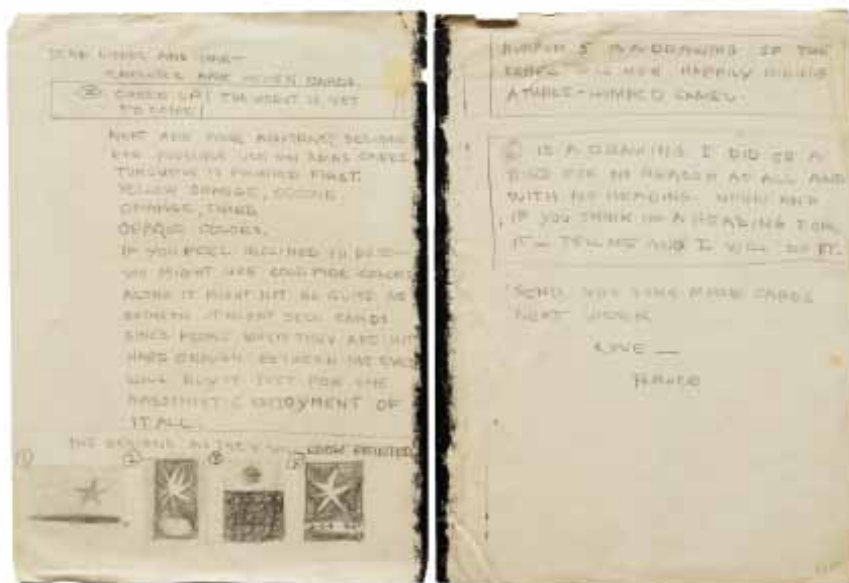 DEAR
ENCLOSED ARE SEVEN CARDS.
② CHEER UP! THE WORST IS YET
TO COME!
NEXT ARE FOUR ABSTRACT DESIGNS
FOR POSSIBLE USE ON XMAS CARDS
TURQUOISE IS PRINTED FIRST.
YELLOW ORANGE, SECOND
ORANGE, THIRD
OPAQUE COLORS.
IF YOU FEEL INCLINED TO DO SO—
YOU MIGHT USE COLORS
IT MIGHT NOT BE QUITE AS
IT MIGHT SELL CARDS
SINCE PEOPLE WHEN THEY ARE HIT
HARD ENOUGH BETWEEN THE EYES
WILL BUY IT JUST FOR THE
MASOCHISTIC ENJOYMENT OF
IT ALL.
THE DESIGNS AS THEY WILL LOOK PRINTED
① ② ③ ④
NUMBER 5 IS A DRAWING OF THE
HAPPILY RIDING
A THREE-HUMPED CAMEL.
⑥ IS A DRAWING I DID OF A
BIRD FOR NO REASON AT ALL AND
WITH NO HEADING. AND
IF YOU THINK OF A HEADING FOR
IT — TELL ME AND I WILL DO IT.
SEND YOU SOME MORE CARDS
NEXT WEEK
LOVE —